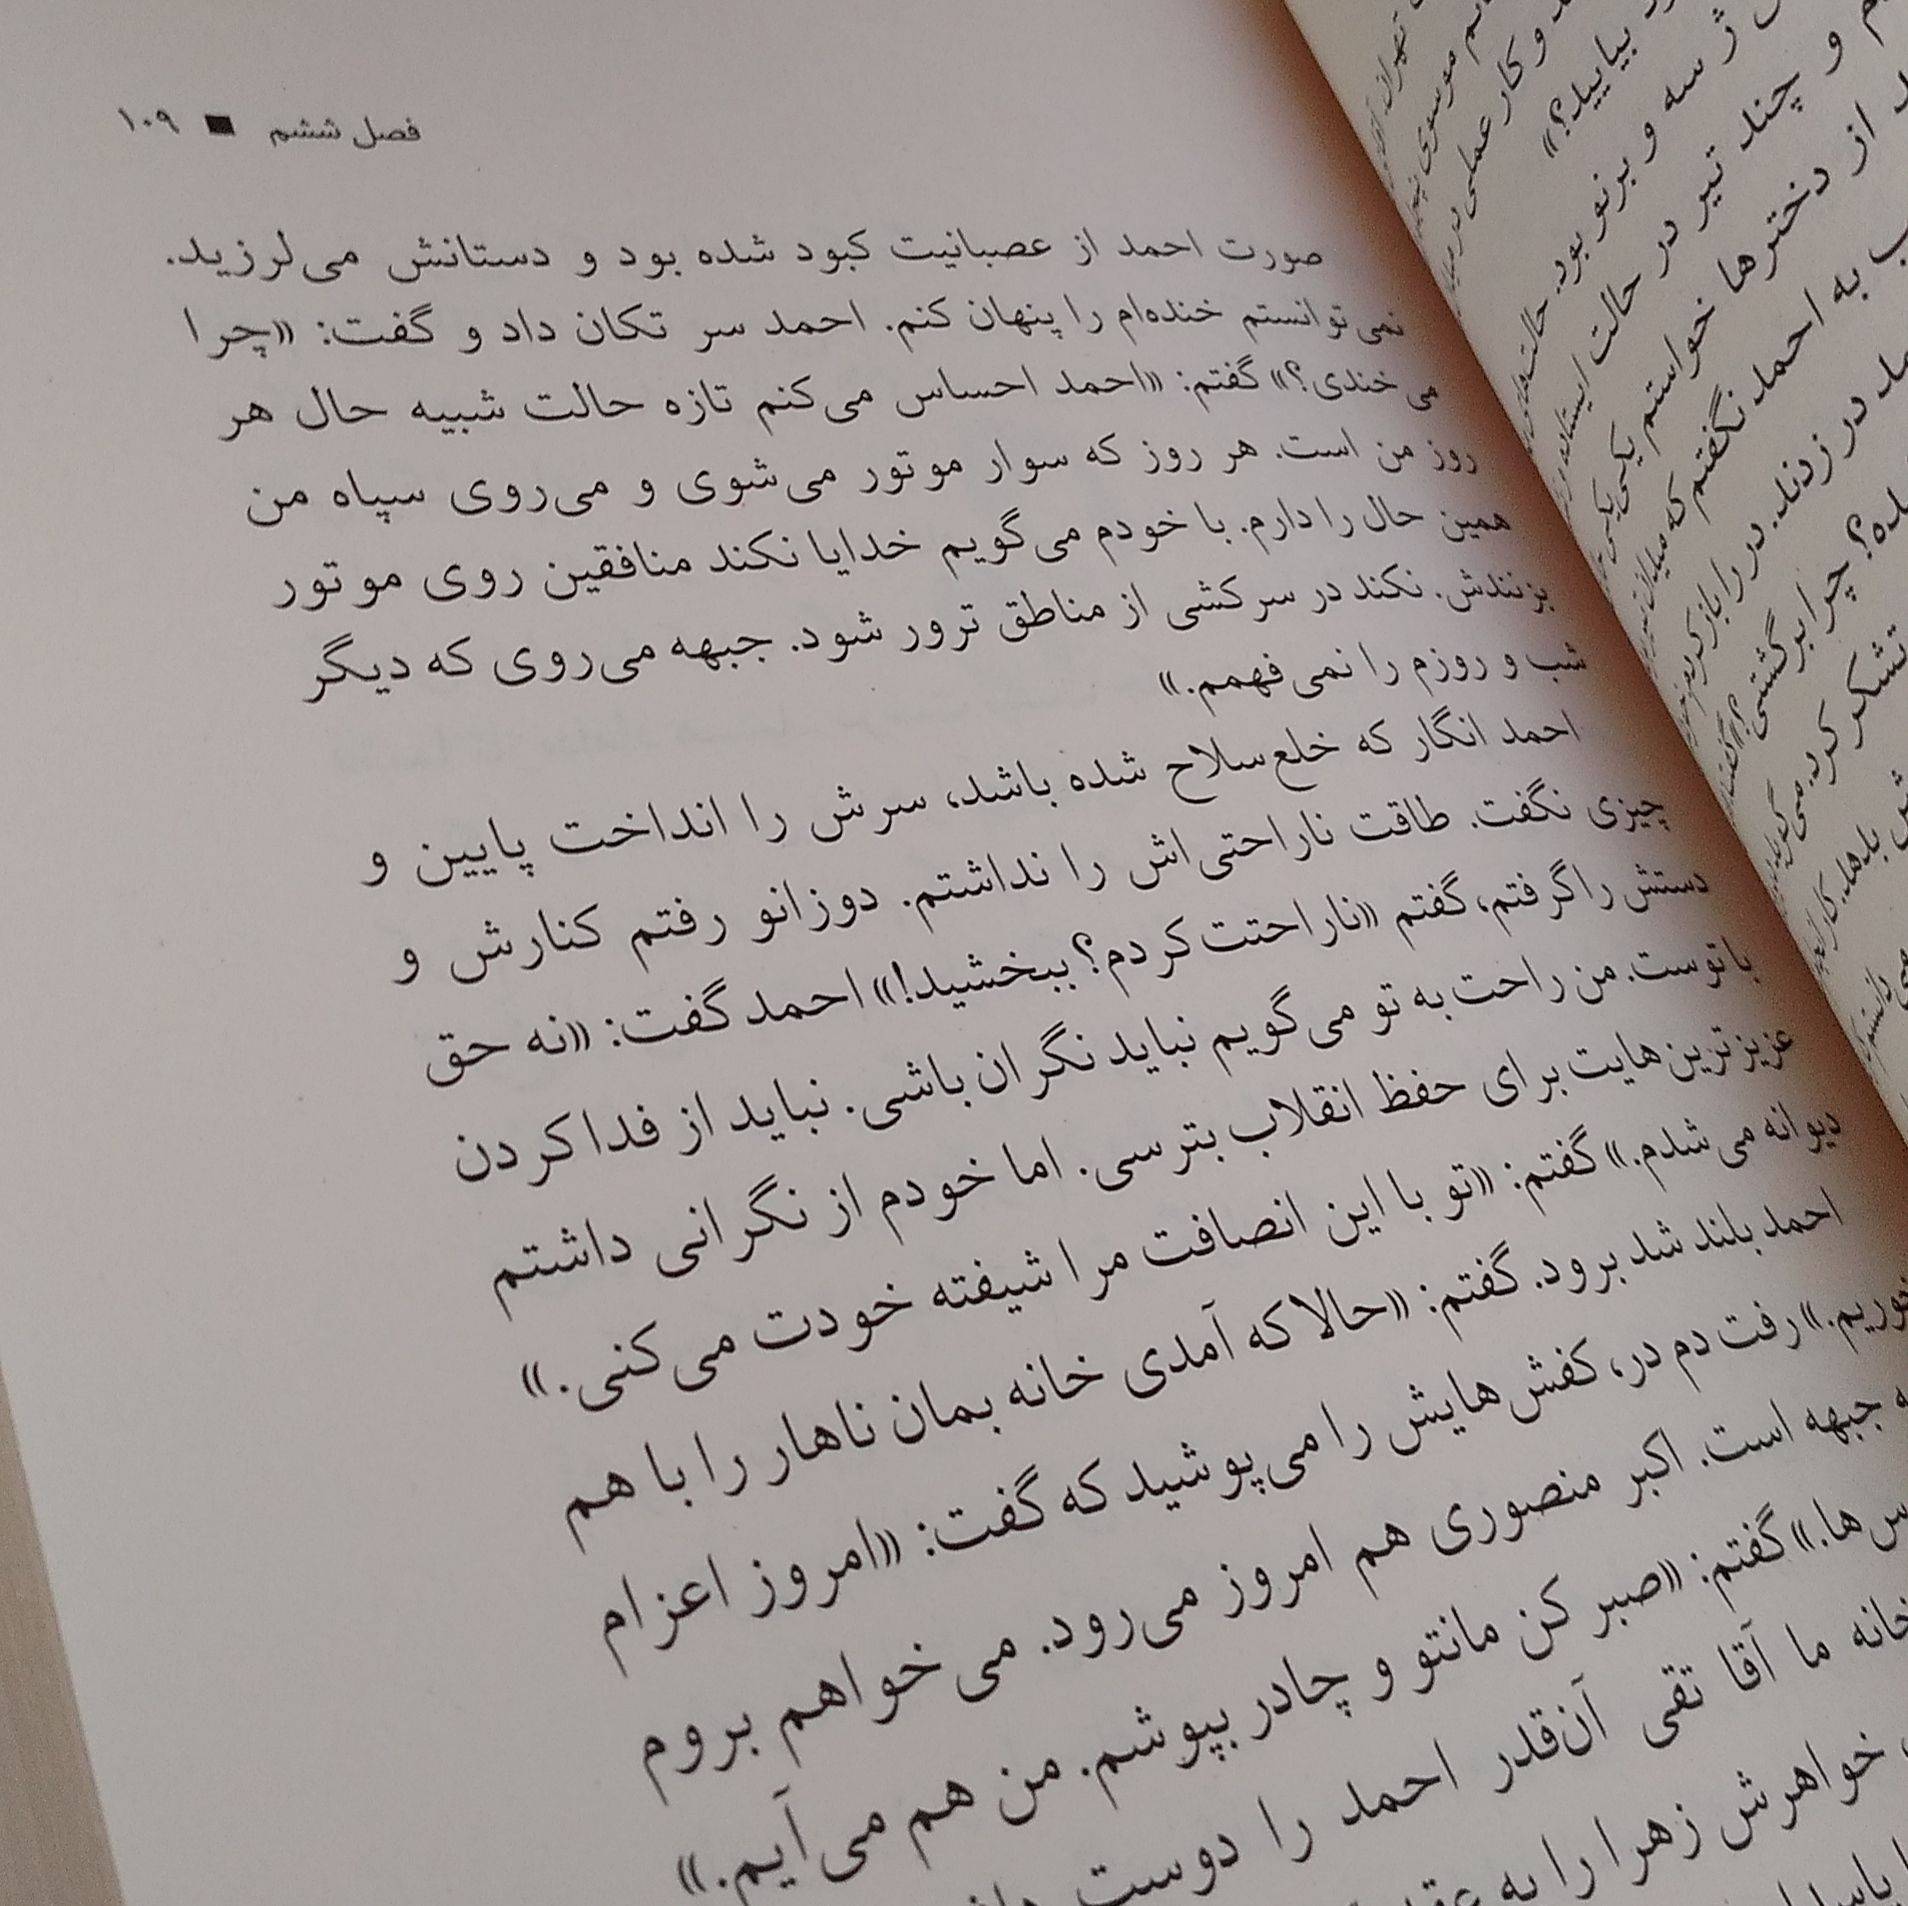 فصل ششم ■ ۱۰۹
صورت احمد از عصبانیت کبود شده بود و دستانش می‌لرزید.
نمی‌توانستم خنده‌ام را پنهان کنم. احمد سر تکان داد و گفت: «چرا
می‌خندی؟» گفتم: «احمد احساس می‌کنم تازه حالت شبیه حال هر
روز من است. هر روز که سوار موتور می‌شوی و می‌روی سپاه من
همین حال را دارم. با خودم می‌گویم خدایا نکند منافقین روی موتور
بزنندش. نکند در سرکشی از مناطق ترور شود. جبهه می‌روی که دیگر
شب و روزم را نمی‌فهمم.»
احمد انگار که خلع‌سلاح شده باشد، سرش را انداخت پایین و
چیزی نگفت. طاقت ناراحتی‌اش را نداشتم. دوزانو رفتم کنارش و
دستش را گرفتم، گفتم «ناراحتت کردم؟ ببخشید!» احمد گفت: «نه حق
با توست. من راحت به تو می‌گویم نباید نگران باشی. نباید از فدا کردن
عزیزترین‌هایت برای حفظ انقلاب بترسی. اما خودم از نگرانی داشتم
دیوانه می‌شدم.» گفتم: «تو با این انصافت مرا شیفته خودت می‌کنی.»
احمد بلند شد برود. گفتم: «حالا که آمدی خانه بمان ناهار را با هم
رفت دم در، کفش‌هایش را می‌پوشید که گفت: «امروز اعزام
جبهه است. اکبر منصوری هم امروز می‌رود. می‌خواهم بروم
گفتم: «صبر کن مانتو و چادر بپوشم. من هم می‌آیم.»
خانه ما آقا تقی آن‌قدر احمد را دوست
خواهرش زهرا را به
بیایید؟»
ژ سه و برنو بود.
و چند تیر در حالت ایستاده
از دخترها خواستم یکی یکی
به احمد نگفتم که
در زدند. در را باز کردم
چرا برگشتی؟»
تشکر کرد.